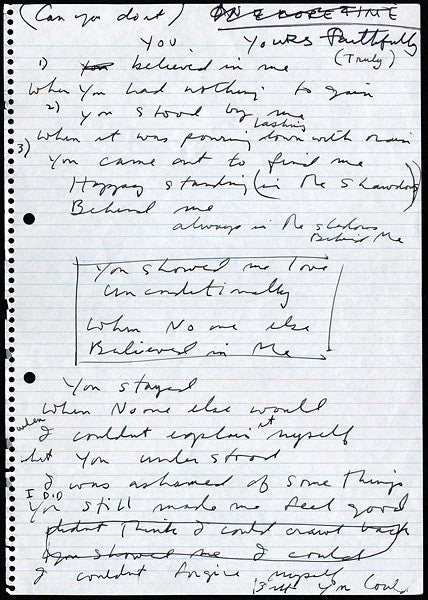 (Can you don't) ONE MORE TIME
YOU Yours Faithfully
(Truly)
1) You believed in me
When You had nothing to gain
2) You stood by me
lashing
When it was pouring down with rain
3) You came out to find me
Happy standing (in the shadows)
Behind me
always in the shadows
Behind Me
You showed me love
unconditionally
When No one else
Believed in Me
You stayed
When No one else would
when I couldn't explain it myself
but You understood
I was ashamed of some things
I DID
You still made me feel good
didnt Think I could crawl back
You showed me I could
I couldnt forgive myself
But You Could